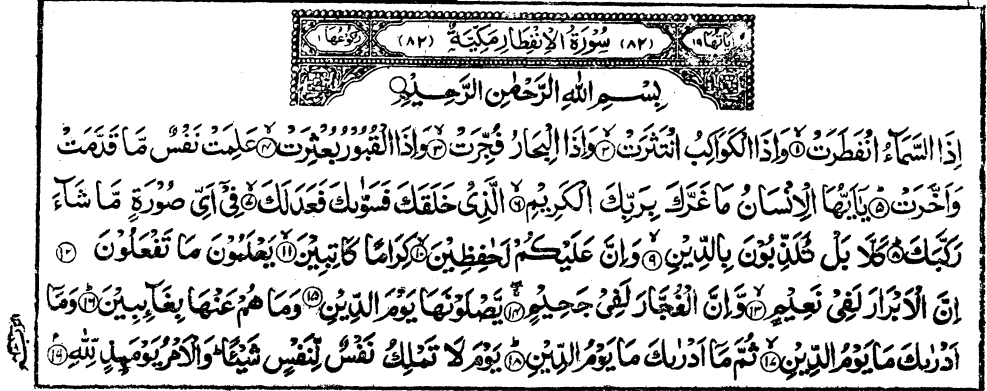 اٰيَاتُهَا ١٩ (٨٢) سُوْرَةُ الْاِنْفِطَارِ مَكِّيَّةٌ (٨٢) رُكُوْعُهَا ١
بِسْمِ اللّٰهِ الرَّحْمٰنِ الرَّحِيْمِ
اِذَا السَّمَآءُ انْفَطَرَتْ ۙ﴿١﴾ وَاِذَا الْكَوَاكِبُ انْتَثَرَتْ ۙ﴿٢﴾ وَاِذَا الْبِحَارُ فُجِّرَتْ ۙ﴿٣﴾ وَاِذَا الْقُبُوْرُ بُعْثِرَتْ ۙ﴿٤﴾ عَلِمَتْ نَفْسٌ مَّا قَدَّمَتْ
وَاَخَّرَتْ ؕ﴿٥﴾ يٰۤاَيُّهَا الْاِنْسَانُ مَا غَرَّكَ بِرَبِّكَ الْكَرِيْمِ ۙ﴿٦﴾ الَّذِيْ خَلَقَكَ فَسَوّٰىكَ فَعَدَلَكَ ۙ﴿٧﴾ فِيْۤ اَيِّ صُوْرَةٍ مَّا شَآءَ
رَكَّبَكَ ؕ﴿٨﴾ كَلَّا بَلْ تُكَذِّبُوْنَ بِالدِّيْنِ ۙ﴿٩﴾ وَاِنَّ عَلَيْكُمْ لَحٰفِظِيْنَ ۙ﴿١٠﴾ كِرَامًا كَاتِبِيْنَ ۙ﴿١١﴾ يَعْلَمُوْنَ مَا تَفْعَلُوْنَ ﴿١٢﴾
اِنَّ الْاَبْرَارَ لَفِيْ نَعِيْمٍ ۙ﴿١٣﴾ وَّاِنَّ الْفُجَّارَ لَفِيْ جَحِيْمٍ ۚۖ﴿١٤﴾ يَّصْلَوْنَهَا يَوْمَ الدِّيْنِ ﴿١٥﴾ وَمَا هُمْ عَنْهَا بِغَآئِبِيْنَ ؕ﴿١٦﴾ وَمَاۤ
اَدْرٰىكَ مَا يَوْمُ الدِّيْنِ ۙ﴿١٧﴾ ثُمَّ مَاۤ اَدْرٰىكَ مَا يَوْمُ الدِّيْنِ ؕ﴿١٨﴾ يَوْمَ لَا تَمْلِكُ نَفْسٌ لِّنَفْسٍ شَيْئًا ؕ وَالْاَمْرُ يَوْمَئِذٍ لِّلّٰهِ ﴿١٩﴾